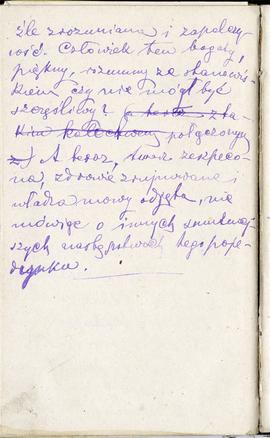 źle zrozumiana i zapalczy-
wość. Człowiek ten bogaty,
piękny, rozumny ze stanowis-
kiem czy nie mógł być
szczęśliwy? (a teraz z ta-
kim kalectwem połączony
z) A teraz, twarz zeszpeco-
na zdrowie zrujnowane i
władza mowy odjęta, nie
mówiąc o innych smutniej-
szych następstwach tego poje-
dynku.